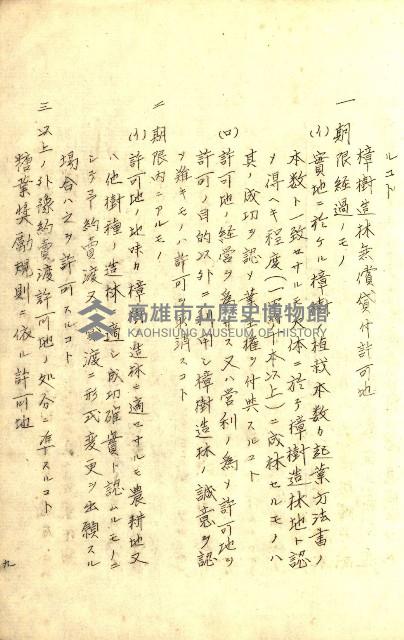 ルコト
樟樹造林無償貸付許可地
一 期限経過ノモノ
(イ) 實地ニ於ケル樟樹植栽本数カ起業方法書ノ
本数ト一致セサルモ 体ニ於テ樟樹造林地ト認
メ得ヘキ程度(一 本以上)ニ成林セルモノハ
其ノ成功ヲ認メ業 権ヲ付與スルコト
(ロ) 許可地ノ経営ヲ為サス又ハ営利ノ為メ許可地ヲ
許可ノ目的以外ニ利 シ樟樹造林ノ誠意ヲ認
メ難キモノハ許可ヲ 消スコト
二 期限内ニアルモノ
(イ) 許可地ノ地味カ樟樹造林ニ適セサルモ農耕地又
ハ他樹種ノ造林ニ適シ成功確實ト認ムルモノニ
シテ予約賣渡又 渡ノ形式変更ヲ出願スル
場合ハ之ヲ許可スルコト
三 以上ノ外豫約賣渡許可地ノ処分ニ準スルコト
糖業奨勵規則ニ依ル許可地
九
高雄市立歷史博物館
KAOHSIUNG MUSEUM OF HISTORY